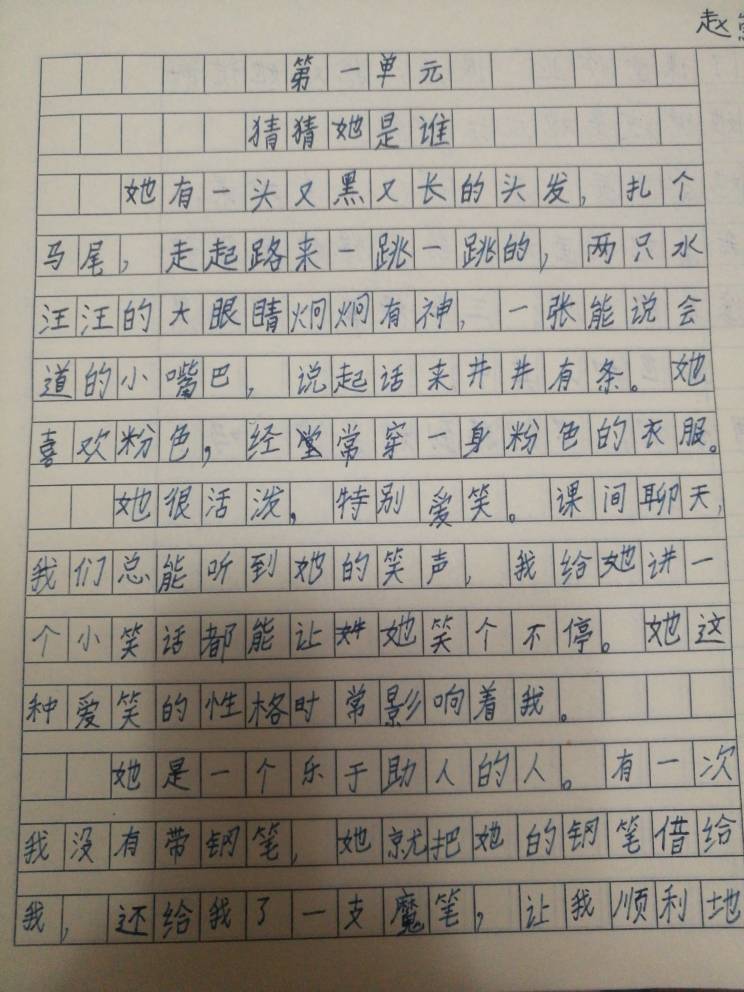 赵
第一单元
猜猜她是谁
她有一头又黑又长的头发，扎个
马尾，走起路来一跳一跳的，两只水
汪汪的大眼睛炯炯有神，一张能说会
道的小嘴巴，说起话来井井有条。她
喜欢粉色，经常穿一身粉色的衣服。
她很活泼，特别爱笑。课间聊天，
我们总能听到她的笑声，我给她讲一
个小笑话都能让她笑个不停。她这
种爱笑的性格时常影响着我。
她是一个乐于助人的人。有一次
我没有带钢笔，她就把她的钢笔借给
我，还给我了一支魔笔，让我顺利地